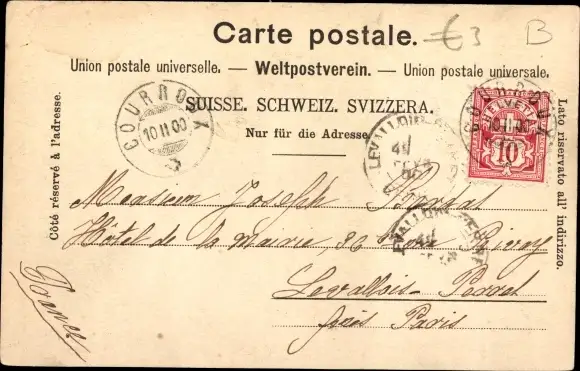 Carte postale.
€3
B
Union postale universelle. — Weltpostverein. — Union postale universale.
SUISSE. SCHWEIZ. SVIZZERA.
Nur für die Adresse
Côté réservé à l'adresse.
Lato riservato all' indirizzo.
COURROUX
10 II 00
HELVETIA
10
LEVALLOIS-PERRET
LEVALLOIS-PERRET
Monsieur Joseph
Hôtel de la Mairie, 96 Rue
Levallois-Perret
près Paris
France